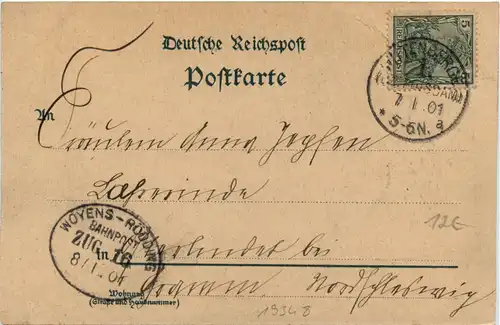 Deutsche Reichspost
Postkarte
5
7 1.01
* 5-6N. a
An
Fräulein Anna Jepsen
WOYENS-RÖDDING
BAHNPOST
ZUG 16
8/1.01
in
bei
Gramm Nordschleswig
Wohnung
(Straße und Hausnummer)
12€
19348